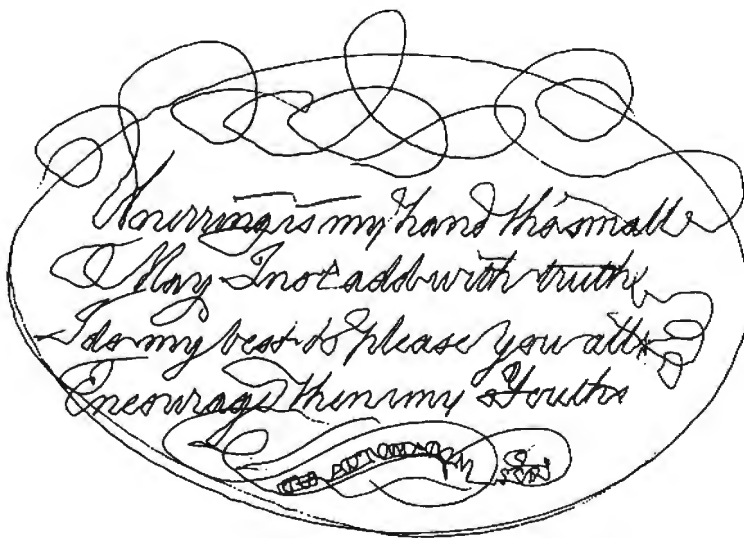 Unerring is my hand tho' small
May I not add with truth
I do my best to please you all
Encourage then my Youth